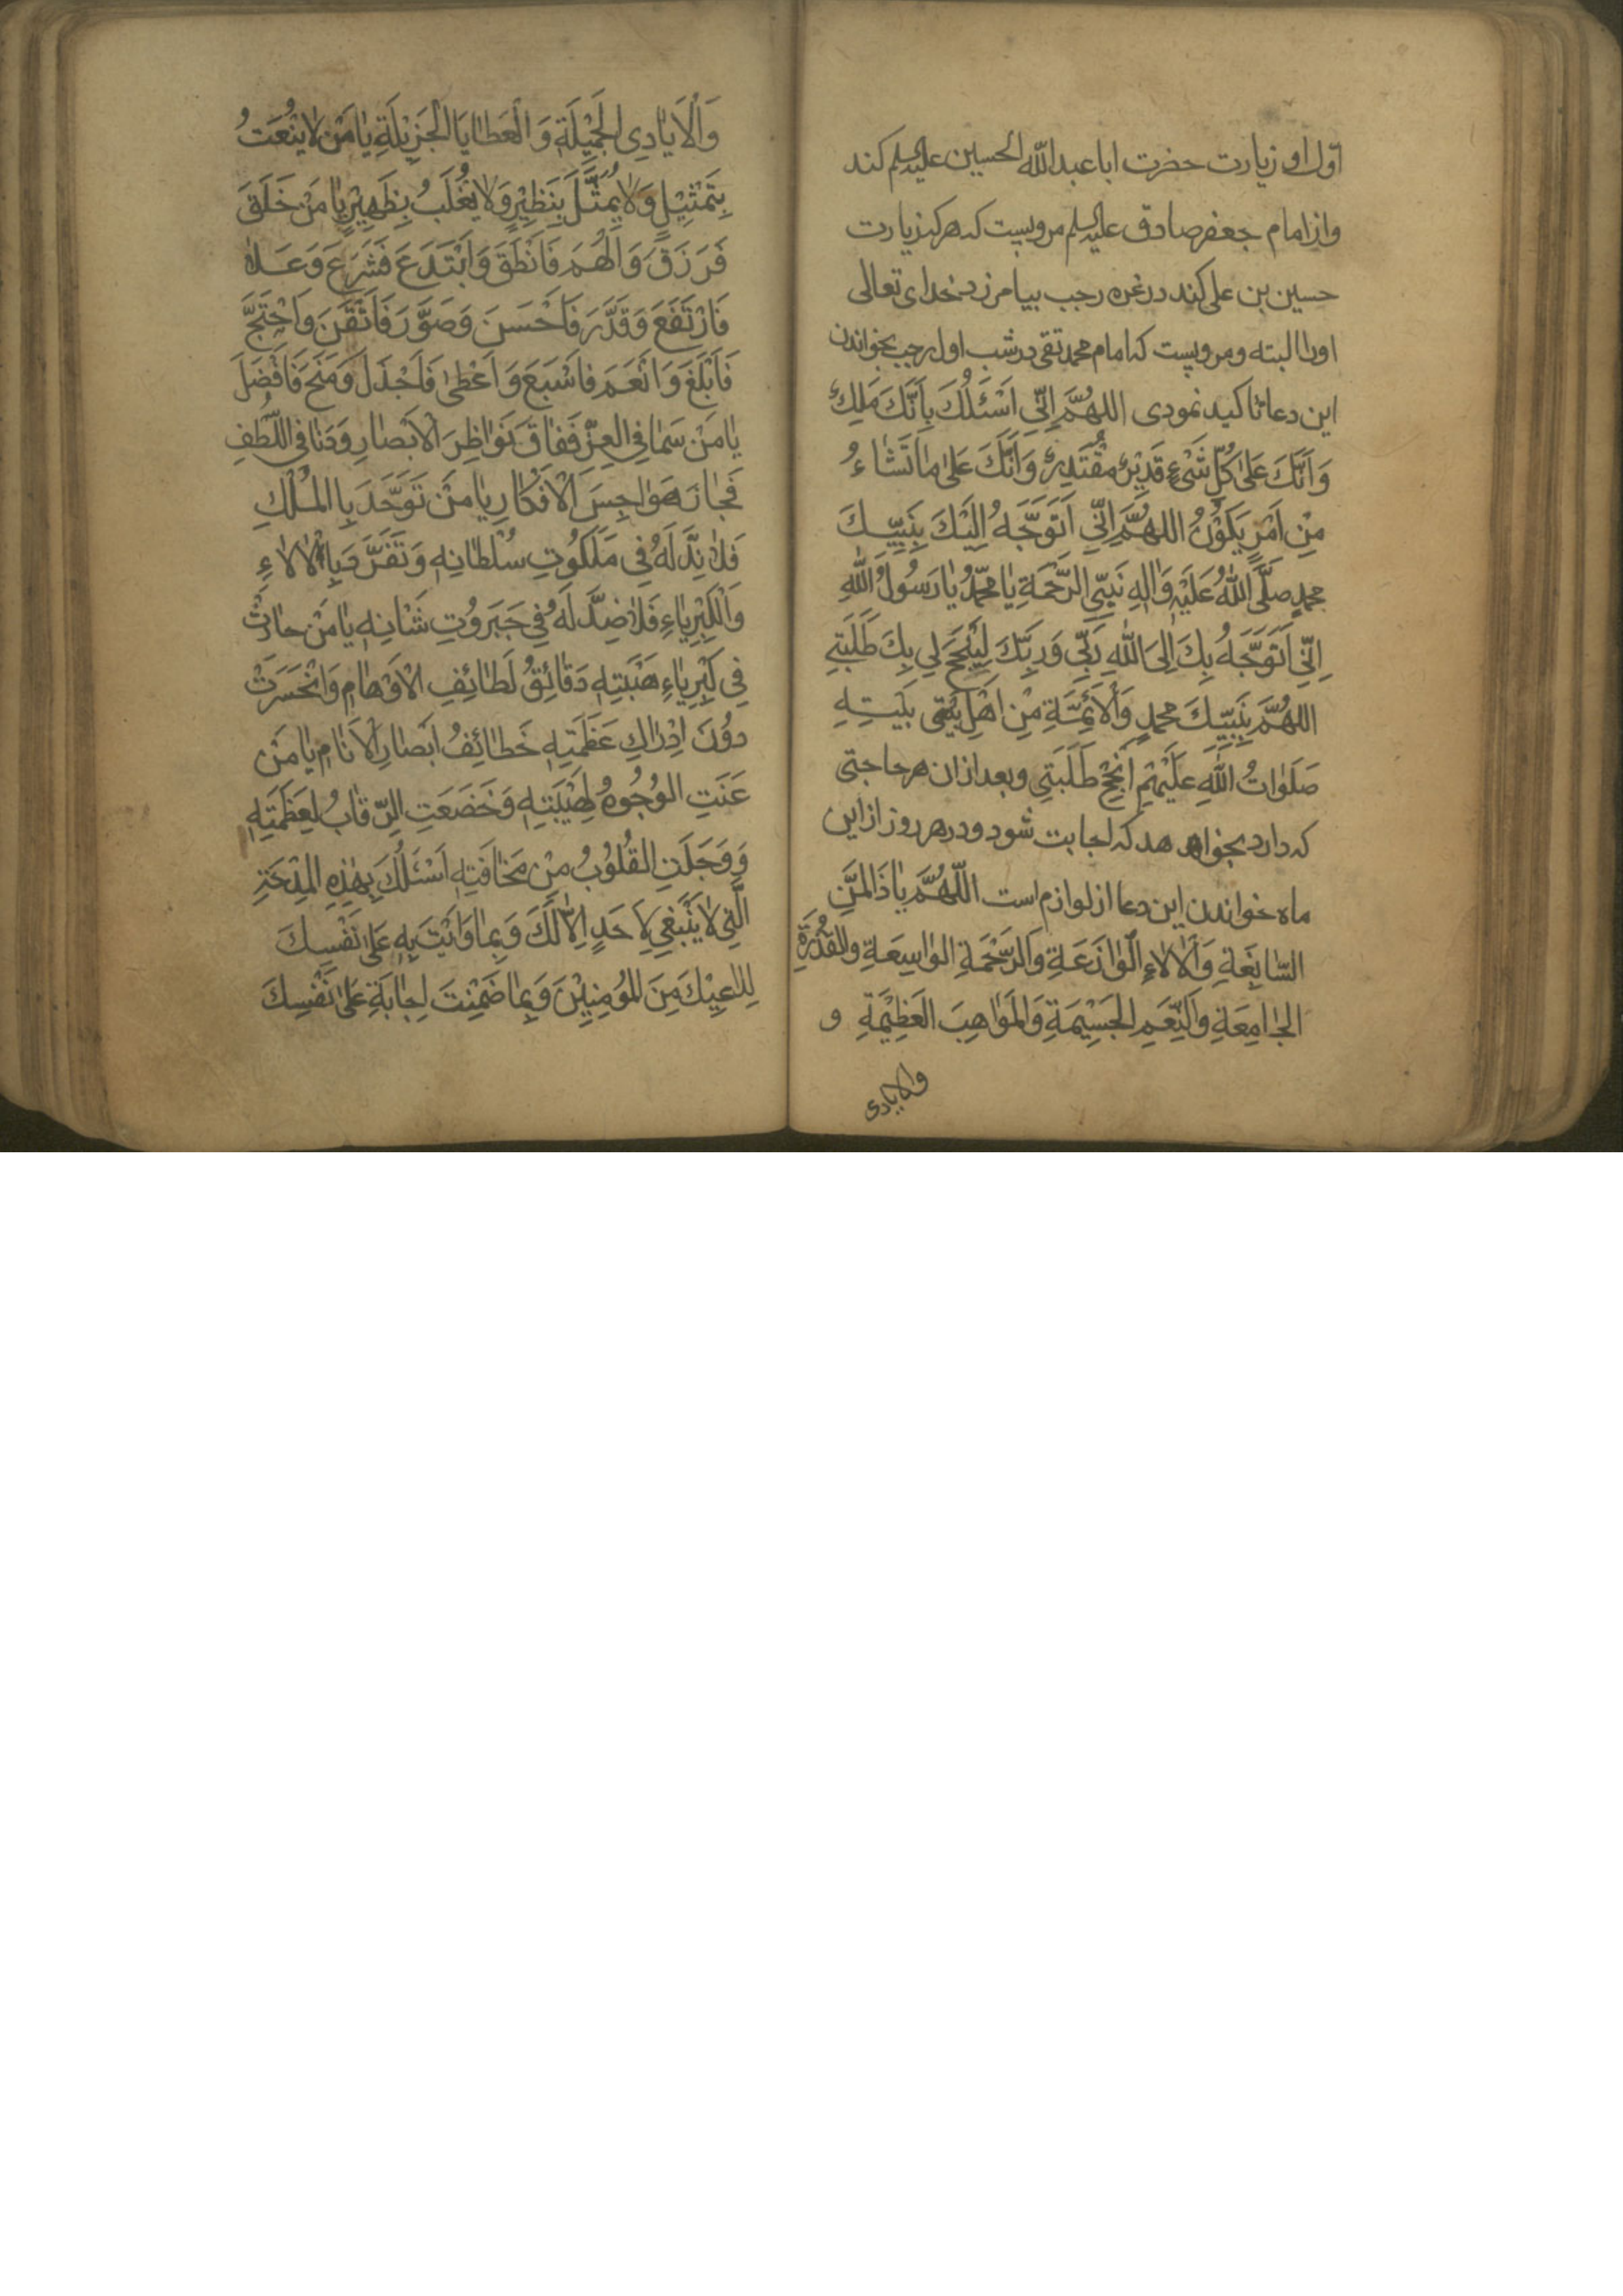 اول او زیارت حضرت ابا عبدالله الحسین علیه السلم کند
واز امام جعفر صادق علیه السلم مرویست که هر که زیارت
حسین بن علی کند در غره رجب بیامرزد خدای تعالی
اورا البته ومرویست که امام محمد تقی در شب اول رجب بخواندن
این دعا تاکید نمودی اللهُمَّ اِنّی اَسْئَلُكَ بِاَنَّكَ مَلِكٌ
وَاَنَّكَ عَلیٰ كُلِّ شَیْءٍ قَدِیْرٌ مُقْتَدِرٌ وَاَنَّكَ عَلیٰ مٰا تَشٰاءُ
مِنْ اَمْرٍ یَكُوْنُ اللهُمَّ اِنّی اَتَوَجَّهُ اِلَیْكَ بِنَبِیِّكَ
محمدٍ صَلَّی اللّٰهُ عَلَیْهِ وَاٰلِهِ نَبِیِّ الرَّحْمَةِ یٰا مُحَمَّدُ یٰا رَسُولَ اللّٰهِ
اِنّی اَتَوَجَّهُ بِكَ اِلیَ اللّٰهِ رَبّی وَرَبِّكَ لِیُنْجِحَ لی بِكَ طَلَبَتی
اللهُمَّ بِنَبِیِّكَ محمدٍ وَالْاَئِمَّةِ مِنْ اَهْلِ بَیْتِهِ
صَلَوٰاتُ اللّٰهِ عَلَیْهِمْ اَنْجِحْ طَلَبَتِی وبعد ازان هر حاجتی
که دارد بخواهد که اجابت شود ودر هر روز ازاین
ماه خواندن این دعا از لوازم است اَللّٰهُمَّ یٰا ذَا الْمَنَنِ
السّٰابِغَةِ وَالْاٰلاٰءِ الْوٰازِعَةِ وَالرَّحْمَةِ الوٰاسِعَةِ والقُدْرَةِ
الجٰامِعَةِ وَالنِّعَمِ الْجَسِیْمَةِ وَالْمَوٰاهِبَ الْعَظِیْمَةِ و
والایادی
وَالْاَیٰادِی الْجَمِیْلَةِ وَالْعَطٰایَا الْجَزِیْلَةِ یٰا مَنْ لاٰ یُنْعَتُ
بِتَمْثِیْلٍ وَلاٰ یُمَثَّلُ بِنَظِیْرٍ وَلاٰ یُغْلَبُ بِظَهِیْرٍ یٰا مَنْ خَلَقَ
فَرَزَقَ وَاَلْهَمَ فَاَنْطَقَ وَابْتَدَعَ فَشَرَعَ وَعَلاٰ
فَارْتَفَعَ وَقَدَّرَ فَاَحْسَنَ وَصَوَّرَ فَاَتْقَنَ وَاحْتَجَّ
فَاَبْلَغَ وَاَنْعَمَ فَاَسْبَغَ وَاَعْطیٰ فَاَجْذَلَ وَمَنَحَ فَاَفْضَلَ
یٰا مَنْ سَمٰا فِی الْعِزِّ فَفٰاقَ نَوٰاظِرَ الْاَبْصٰارِ وَدَنٰا فِی اللُّطْفِ
فَجٰازَ هَوٰاجِسَ الْاَفْكٰارِ یٰا مَنْ تَوَحَّدَ بِالْمُلْكِ
فَلاٰ نِدَّ لَهُ فِی مَلَكُوتِ سُلْطٰانِهِ وَتَفَرَّدَ بِالْاٰلاٰءِ
وَالْكِبْرِیٰاءِ فَلاٰ ضِدَّ لَهُ فِی جَبَرُوْتِ شَانِهِ یٰا مَنْ حٰارَتْ
فِی كِبْرِیٰاءِ هَیْبَتِهِ دَقٰائِقُ لَطٰائِفِ الْاَوْهٰامِ وَانْحَسَرَتْ
دوُنَ اِدْرٰاكِ عَظَمَتِهِ خَطٰائِفُ اَبْصٰارِ الْاَنٰامِ یٰا مَنْ
عَنَتِ الْوُجُوْهُ لِهَیْبَتِهِ وَخَضَعَتِ الرِّقٰابُ لِعَظَمَتِهِ
وَوَجِلَتِ الْقُلُوْبُ مِنْ مَخٰافَتِهِ اَسْئَلُكَ بِهٰذِهِ الْمِدْحَةِ
الَّتی لاٰ یَنْبَغِی لِاَحَدٍ اِلاّٰ لَكَ وَبِمٰا وَاَیْتَ بِهِ عَلیٰ نَفْسِكَ
لِدٰاعِیْكَ مِنَ الْمُؤمِنِیْنَ وَبِمٰا ضَمِنْتَ اِجٰابَةِ عَلیٰ نَفْسِكَ